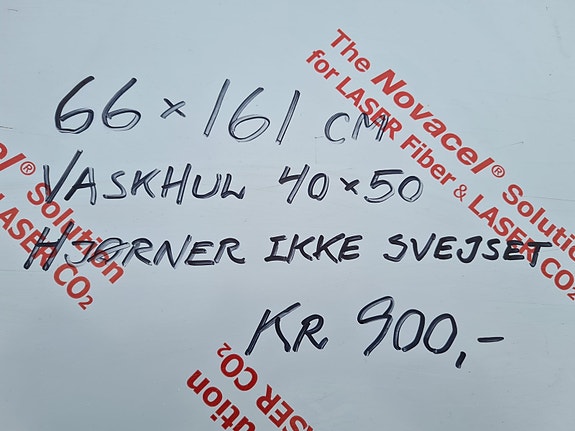 The Novacel® Solution
for LASER Fiber & LASER CO2
66 × 161 CM
VASKHUL 40×50
HJØRNER IKKE SVEJSET
KR 900,-
cel® Solution
LASER CO2
ution
SER CO2